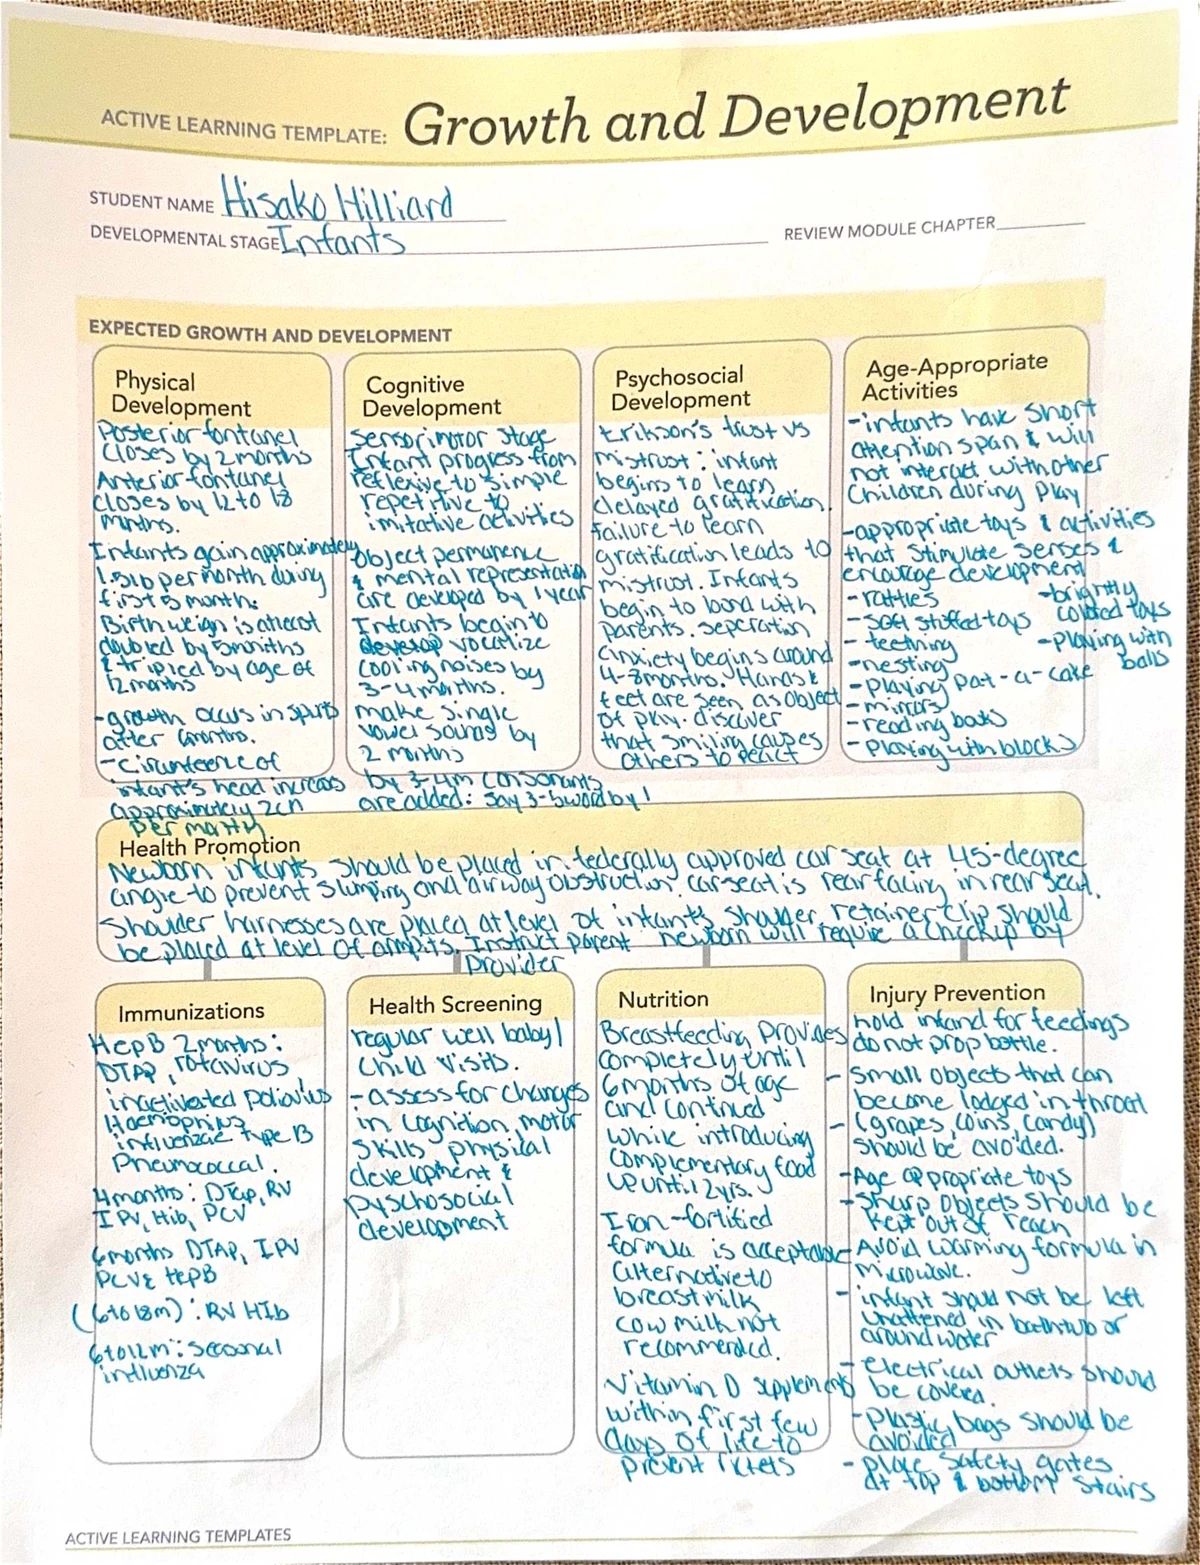 ACTIVE LEARNING TEMPLATE: Growth and Development
STUDENT NAME Hisako Hilliard
DEVELOPMENTAL STAGE Infants
REVIEW MODULE CHAPTER
EXPECTED GROWTH AND DEVELOPMENT
Physical
Development
Posterior fontanel
closes by 2 months
Anterior fontanel
closes by 12 to 18
months.
Infants gain approximately
1.5lb per month during
first 5 month.
Birth weign is atleast
doubled by 5months
& tripled by age of
12 months
-growth occus in spurts
after 6months.
-
infant's head increas
approximately 2cm
per month
Cognitive
Development
Sensorimotor Stage
Infant progress from
reflexive to simple
repetitive to
imitative activities
Object permanence
& mental representation
are developed by 1 year
Infants begin to
develop vocalize
cooling noises by
3-4 months.
make single
vowel sounds by
2 months
by 3-4m consonants
are added: say 3-5 word by 1
Psychosocial
Development
Erikson's trust vs
mistrust: infant
begins to learn
delayed gratification.
Failure to learn
gratification leads to
mistrust. Infants
begin to bond with
parents. seperation
anxiety begins around
4-8months. Hands &
feet are seen as object
of play. discover
that smiling causes
others to react
Age-Appropriate
Activities
-infants have short
attention span & will
not interact with other
children during play
-appropriate toys & activities
that stimulate senses &
encourage development
-rattles
-soft stuffed toys
-teething
-nesting
-playing pat-a-cake
-mirrors
-reading books
-playing with blocks
-brightly
colored toys
-playing with
balls
Health Promotion
Newborn infants should be placed in federally approved car seat at 45-degree
angle to prevent slumping and airway obstruction. car seat is rear facing in rear seat.
Shoulder harnesses are placed at level of infant's shoulder. retainer clip should
be placed at level of armpits. Instruct parent newborn will require a checkup by
provider
Immunizations
HepB 2months:
DTAP, rotavirus
inactivated
Haemophilus
influenzae type B
Pneumococcal.
4months: DTap, RV
IPV, Hib, PCV
6months DTAP, IPV
PCV& HepB
(6to18m): RV HIb
6to12m: Seasonal
influenza
Health Screening
regular well baby/
child visits.
-assess for changes
in cognition, motor
skills physical
development &
pyschosocial
development
Nutrition
Breastfeeding provides
completely until
6months of age
and contined
while introducing
complementary food
up until 2yrs.
Iron-fortified
formula is acceptable
alternative to
breastmilk
cow milk not
recommended.
Vitamin D supplements
within first few
days of life to
prevent rickets
Injury Prevention
hold infand for feedings
do not prop bottle.
- small objects that can
become lodged in throat
- (grapes, coins, candy)
should be avoided.
-Age appropriate toys
-sharp objects should be
kept out of reach
Avoid warming formula in
microwave.
- infant should not be left
unattened in bathtub or
around water
- electrical outlets should
be covered.
-plastic bags should be
avoided
- place safety gates
at top & bottom stairs
ACTIVE LEARNING TEMPLATES